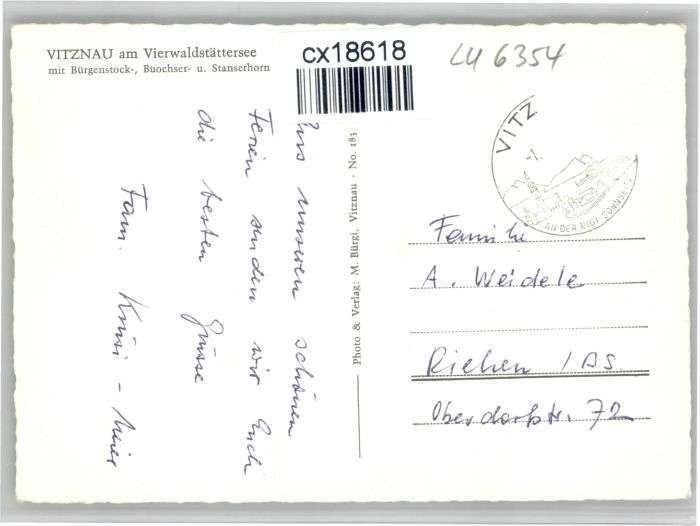 VITZNAU am Vierwaldstättersee
mit Bürgenstock-, Buochser- u. Stanserhorn
cx18618
LU 6354
VITZ
AN DER RIGI-SONNSEITE
Aus unseren schönen
Ferien senden wir Euch
die besten Grüsse
Fam. Knüsi - Meier
Photo & Verlag: M. Bürgi, Vitznau - No. 183
Familie
A. Weidele
Riehen / BS.
Oberdorfstr. 72